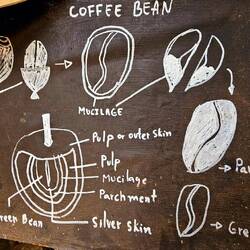 COFFEE BEAN
MUCILAGE
Pulp or outer skin
Pulp
Mucilage
Parchment
Silver Skin
reen Bean
Pa
Gre